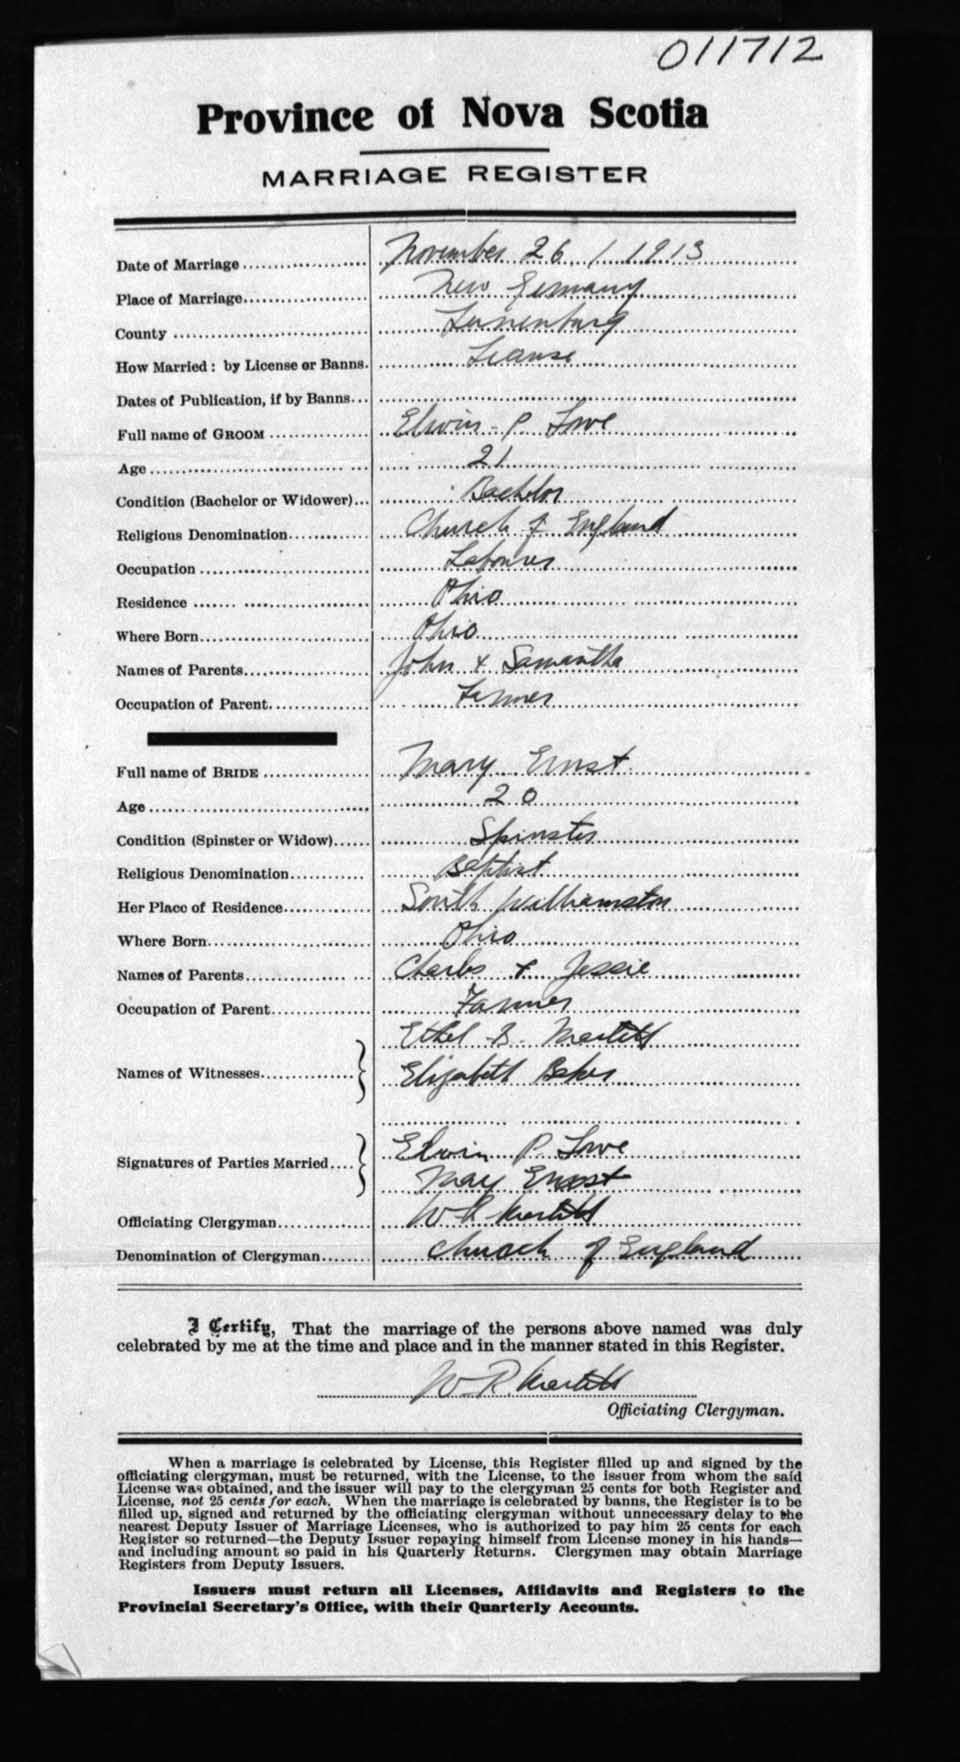 011712
Province of Nova Scotia
MARRIAGE REGISTER
Date of Marriage November 26 / 1913
Place of Marriage New Germany
County Lunenburg
How Married: by License or Banns.
Dates of Publication, if by Banns
Full name of GROOM Elwin P
Age 21
Condition (Bachelor or Widower) Bachelor
Religious Denomination Church of England
Occupation Labourer
Residence Ohio
Where Born Ohio
Names of Parents John & Samantha
Occupation of Parent Farmer
Full name of BRIDE Mary Ernst
Age 20
Condition (Spinster or Widow) Spinster
Religious Denomination Baptist
Her Place of Residence South Williamston
Where Born Ohio
Names of Parents Charles & Jessie
Occupation of Parent Farmer
Ethel B.
Names of Witnesses Elizabeth
Elvin P
Signatures of Parties Married
May Ernst
Officiating Clergyman W R
Denomination of Clergyman Church of England
I Certify, That the marriage of the persons above named was duly
celebrated by me at the time and place and in the manner stated in this Register.
W. R.
Officiating Clergyman.
When a marriage is celebrated by License, this Register filled up and signed by the
officiating clergyman, must be returned, with the License, to the issuer from whom the said
License was obtained, and the issuer will pay to the clergyman 25 cents for both Register and
License, not 25 cents for each. When the marriage is celebrated by banns, the Register is to be
filled up, signed and returned by the officiating clergyman without unnecessary delay to the
nearest Deputy Issuer of Marriage Licenses, who is authorized to pay him 25 cents for each
Register so returned—the Deputy Issuer repaying himself from License money in his hands—
and including amount so paid in his Quarterly Returns. Clergymen may obtain Marriage
Registers from Deputy Issuers.
Issuers must return all Licenses, Affidavits and Registers to the
Provincial Secretary's Office, with their Quarterly Accounts.